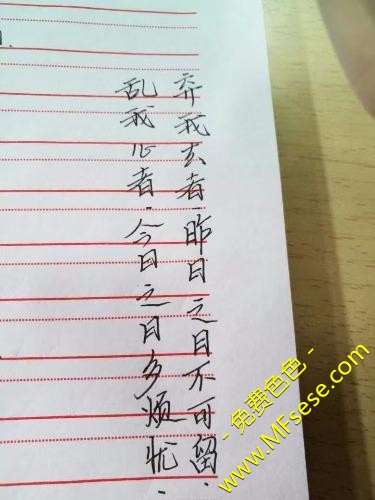 弃我去者·昨日之日不可留·
乱我心者·今日之日多烦忧·
- 免費色色 -
www.MFsese.com